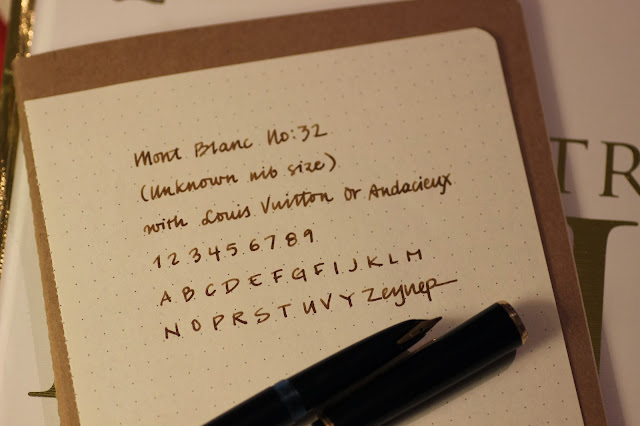 Mont Blanc No:32
(Unknown nib size)
with Louis Vuitton Or Audacieux
1 2 3 4 5 6 7 8 9
A B C D E F G F I J K L M
N O P R S T U V Y Zeynep
TR